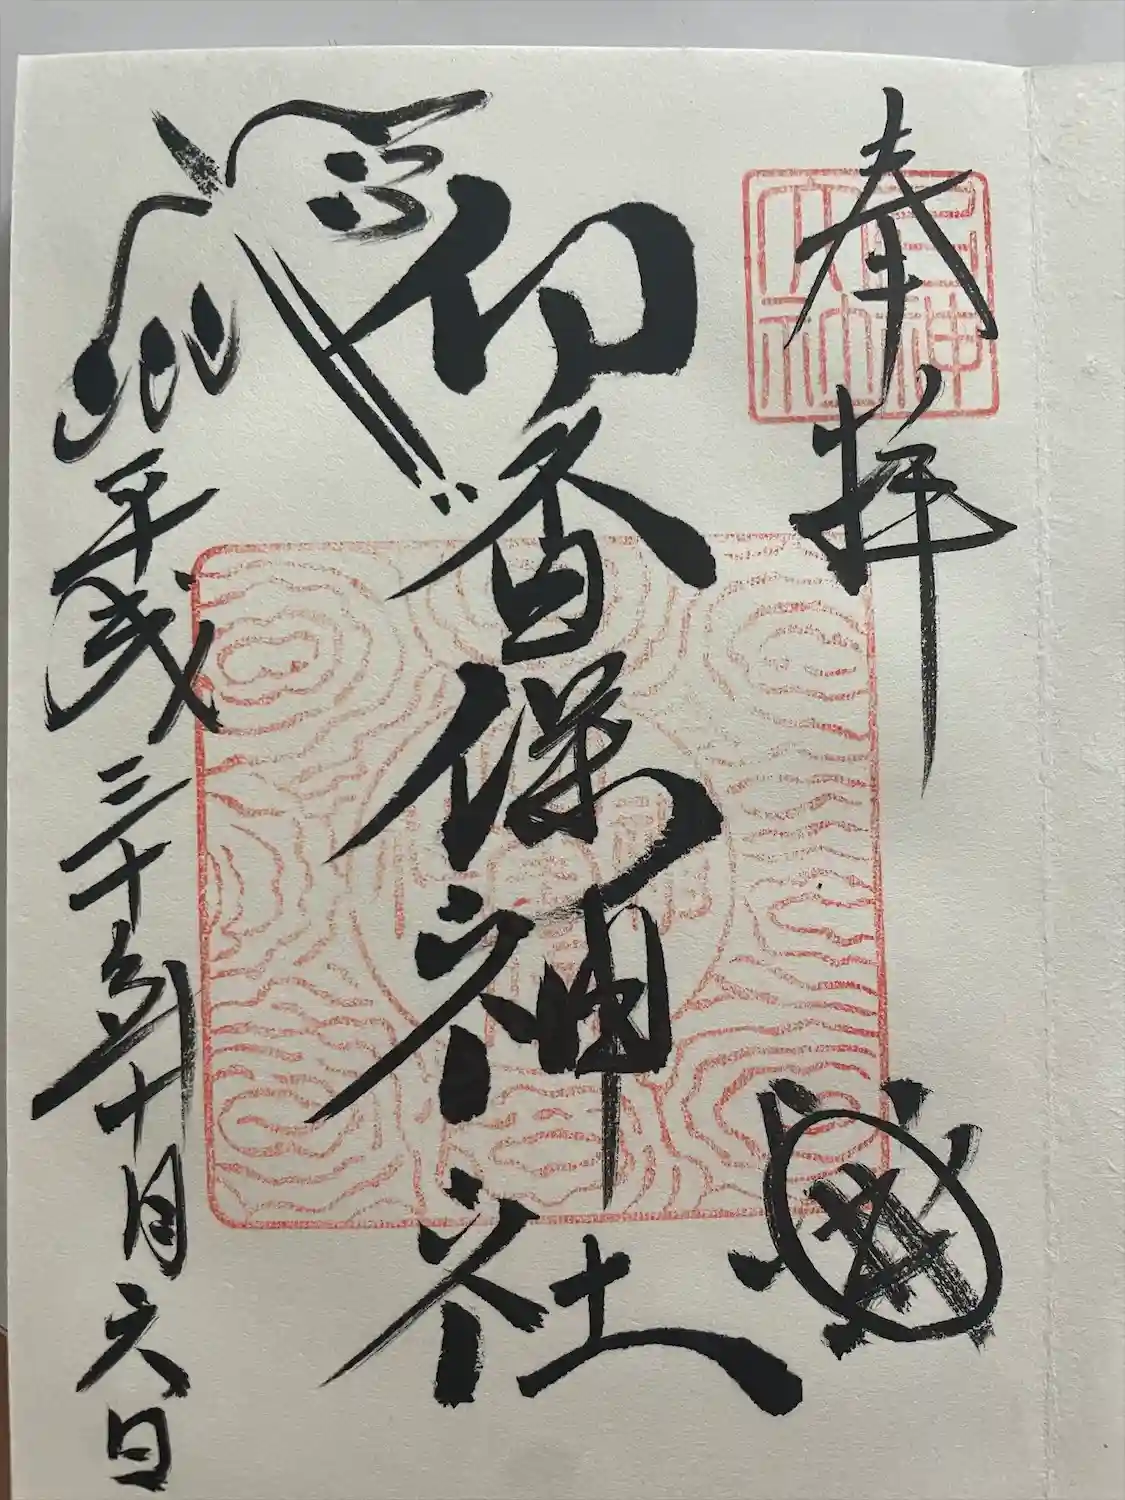 奉拝
伊香保神社
平成三十年十月六日